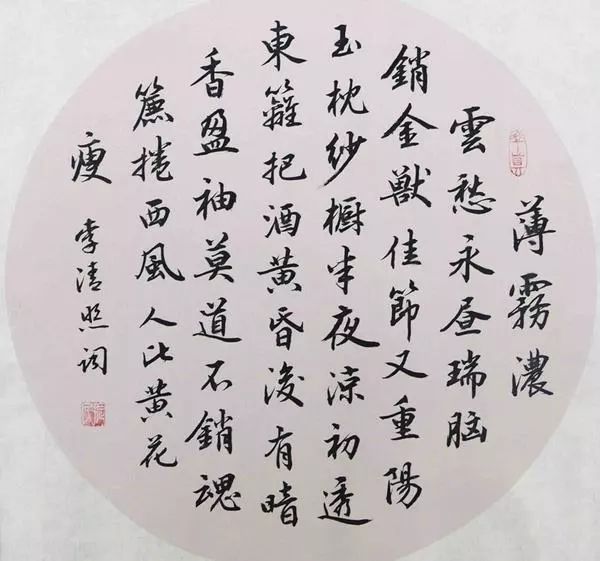 薄霧濃
雲愁永昼瑞脳
銷金獣佳節又重陽
玉枕紗橱半夜涼初透
東籬把酒黄昏後有暗
香盈袖莫道不銷魂
簾捲西風人比黄花
瘦
李清照词